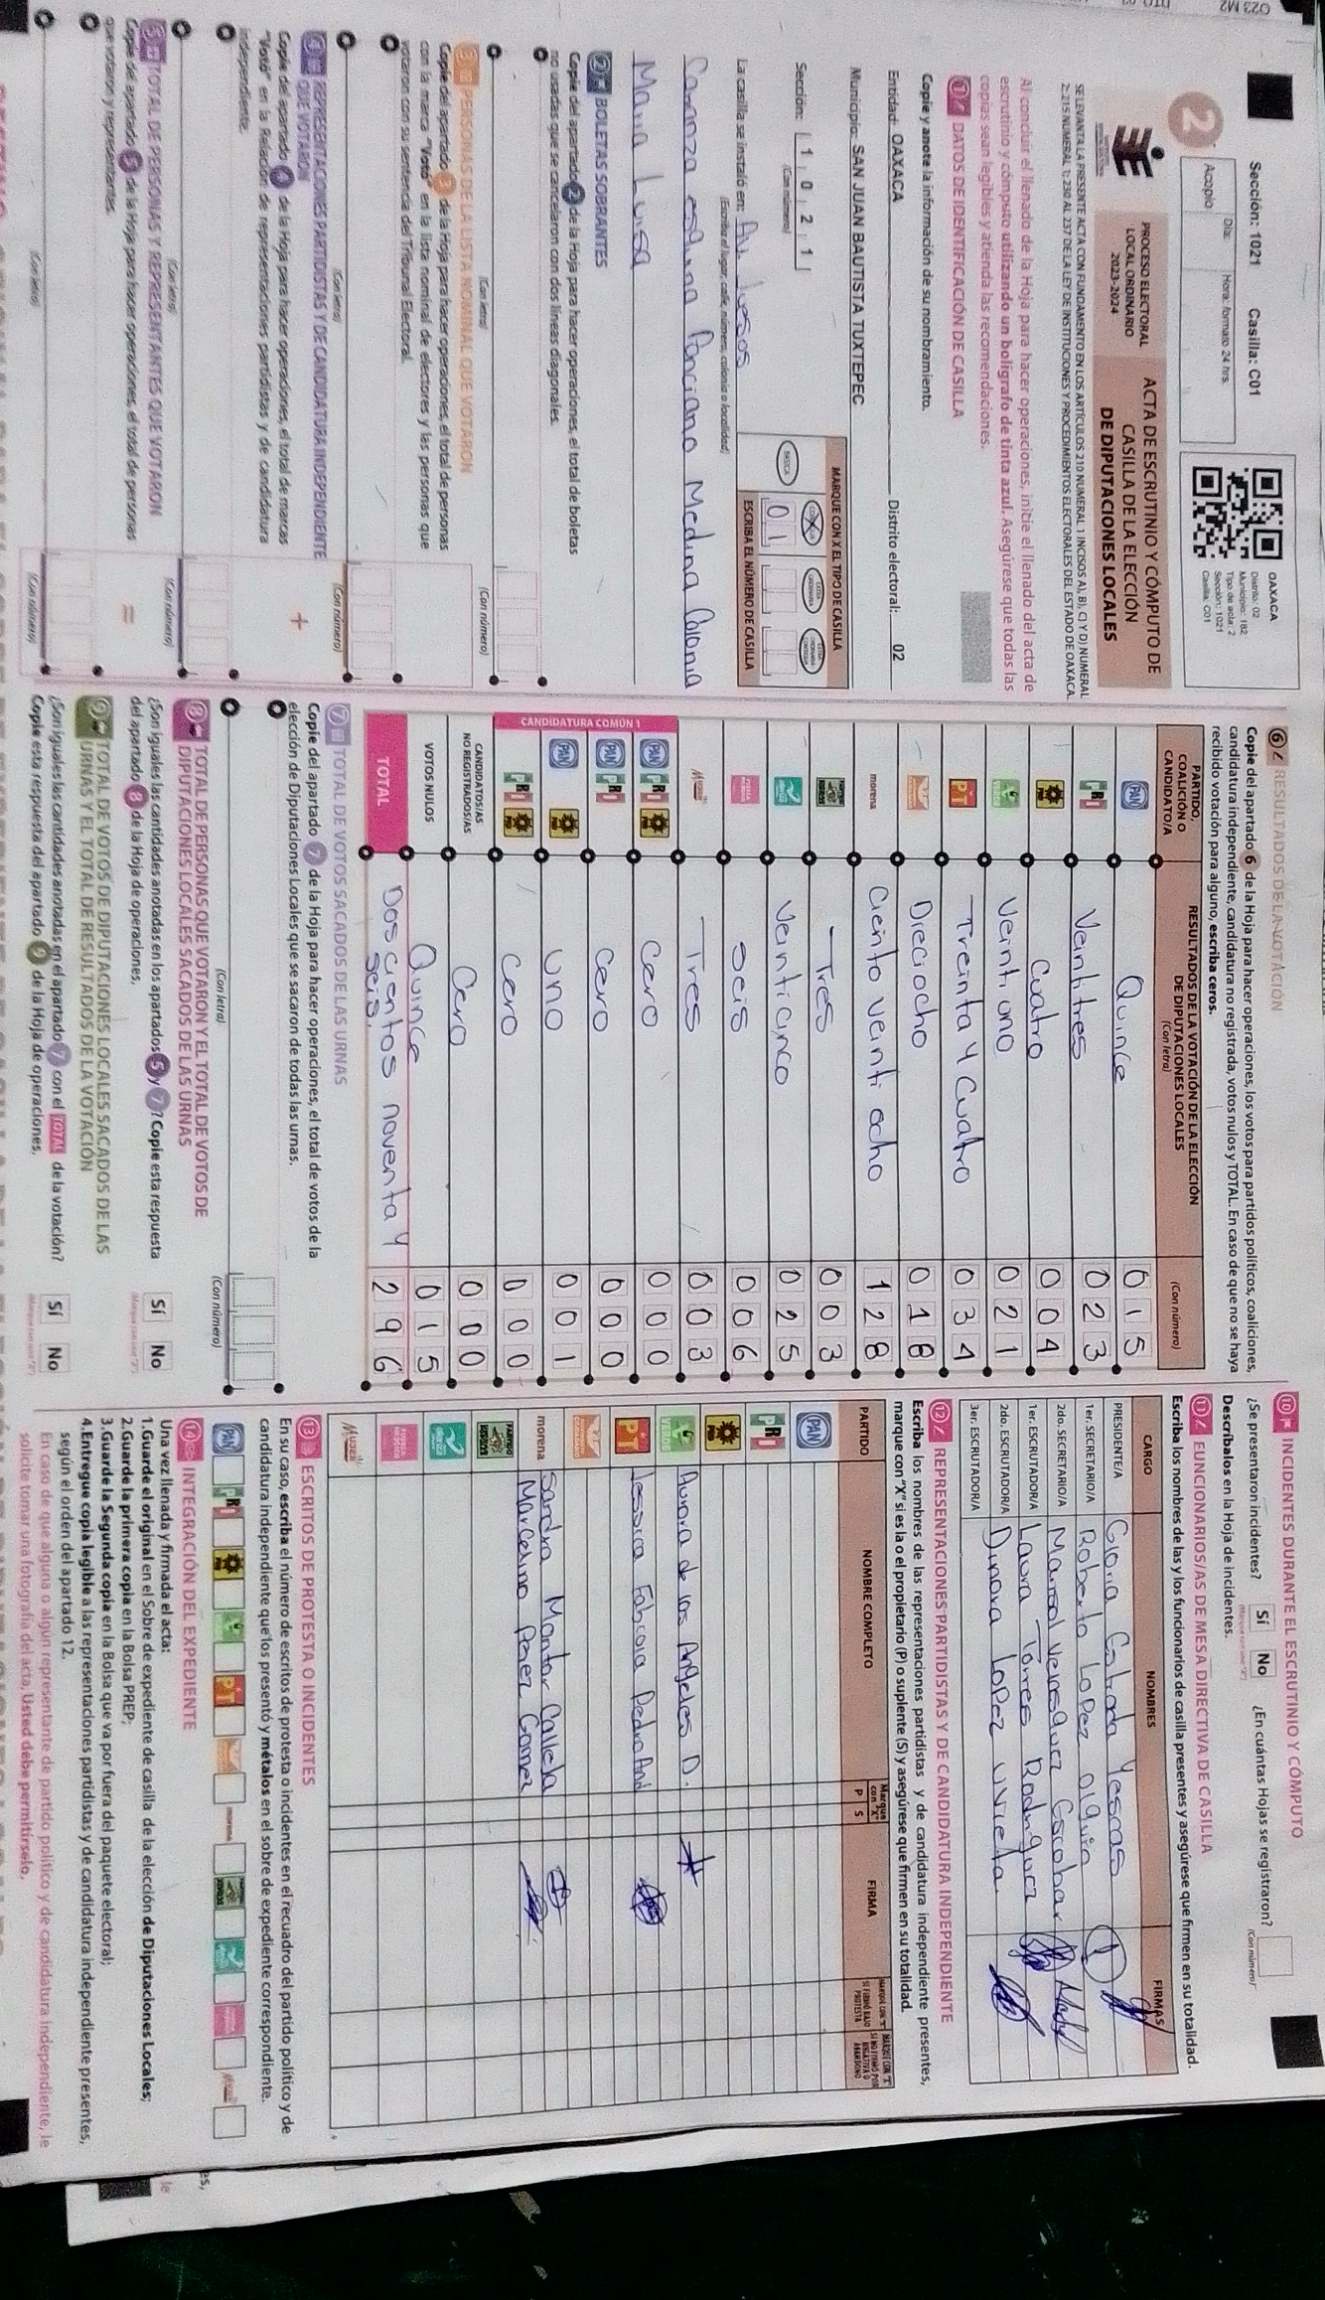 Sección: 1021 Casilla: C01
2
Acopio
Día: Hora: formato 24 hrs.
OAXACA
Distrito: 02
Municipio: 182
Tipo de acta: 2
Sección: 1021
Casilla: C01
PROCESO ELECTORAL
LOCAL ORDINARIO
2023-2024
ACTA DE ESCRUTINIO Y CÓMPUTO DE
CASILLA DE LA ELECCIÓN
DE DIPUTACIONES LOCALES
SE LEVANTA LA PRESENTE ACTA CON FUNDAMENTO EN LOS ARTÍCULOS 210 NUMERAL 1 INCISOS A), B), C) Y D) NUMERAL
2; 215 NUMERAL 1; 230 AL 237 DE LA LEY DE INSTITUCIONES Y PROCEDIMIENTOS ELECTORALES DEL ESTADO DE OAXACA.
Al concluir el llenado de la Hoja para hacer operaciones, inicie el llenado del acta de
escrutinio y cómputo utilizando un bolígrafo de tinta azul. Asegúrese que todas las
copias sean legibles y atienda las recomendaciones.
1 DATOS DE IDENTIFICACIÓN DE CASILLA
Copie y anote la información de su nombramiento.
Entidad: OAXACA Distrito electoral: 02
Municipio: SAN JUAN BAUTISTA TUXTEPEC
Sección: 1 0 2 1
(Con número)
MARQUE CON X EL TIPO DE CASILLA
BÁSICA
ESCRIBA EL NÚMERO DE CASILLA
01
La casilla se instaló en:
(Escriba el lugar, calle, número, colonia o localidad)
Medina Colonia
Maria Luisa
2 BOLETAS SOBRANTES
Copie del apartado 2 de la Hoja para hacer operaciones, el total de boletas
no usadas que se cancelaron con dos líneas diagonales.
(Con letra) (Con número)
3 PERSONAS DE LA LISTA NOMINAL QUE VOTARON
Copie del apartado 3 de la Hoja para hacer operaciones, el total de personas
con la marca "Votó" en la lista nominal de electores y las personas que
votaron con su sentencia del Tribunal Electoral.
(Con letra) (Con número)
4 REPRESENTACIONES PARTIDISTAS Y DE CANDIDATURA INDEPENDIENTE
QUE VOTARON
Copie del apartado 4 de la Hoja para hacer operaciones, el total de marcas
"Votó" en la Relación de representaciones partidistas y de candidatura
independiente.
(Con letra) (Con número)
5 TOTAL DE PERSONAS Y REPRESENTANTES QUE VOTARON
Copie del apartado 5 de la Hoja para hacer operaciones, el total de personas
que votaron y representantes.
(Con letra) (Con número)
6 RESULTADOS DE LA VOTACIÓN
Copie del apartado 6 de la Hoja para hacer operaciones, los votos para partidos políticos, coaliciones,
candidatura independiente, candidatura no registrada, votos nulos y TOTAL. En caso de que no se haya
recibido votación para alguno, escriba ceros.
PARTIDO, COALICIÓN O CANDIDATO/A
RESULTADOS DE LA VOTACIÓN DE LA ELECCIÓN
DE DIPUTACIONES LOCALES
(Con letra) (Con número)
PAN Quince 015
PRI Veintitres 023
PRD Cuatro 004
VERDE Veinti uno 021
PT Treinta y Cuatro 034
Dieciocho 018
morena Ciento veinti ocho 128
Tres 003
Veinticinco 025
Seis 006
Mujer Tres 003
CANDIDATURA COMÚN 1
PAN PRI PRD Cero 000
PAN PRI Cero 000
PAN PRD Uno 001
PRI PRD Cero 000
CANDIDATOS/AS
NO REGISTRADOS/AS Cero 000
VOTOS NULOS Quince 015
TOTAL Doscientos noventa y
seis. 296
7 TOTAL DE VOTOS SACADOS DE LAS URNAS
Copie del apartado 7 de la Hoja para hacer operaciones, el total de votos de la
elección de Diputaciones Locales que se sacaron de todas las urnas.
(Con letra) (Con número)
8 TOTAL DE PERSONAS QUE VOTARON Y EL TOTAL DE VOTOS DE
DIPUTACIONES LOCALES SACADOS DE LAS URNAS
¿Son iguales las cantidades anotadas en los apartados 5 y 7? Copie esta respuesta
del apartado 8 de la Hoja de operaciones.
Sí No
9 TOTAL DE VOTOS DE DIPUTACIONES LOCALES SACADOS DE LAS
URNAS Y EL TOTAL DE RESULTADOS DE LA VOTACIÓN
¿Son iguales las cantidades anotadas en el apartado 7 con el TOTAL de la votación?
Copie esta respuesta del apartado 9 de la Hoja de operaciones.
Sí No
10 INCIDENTES DURANTE EL ESCRUTINIO Y CÓMPUTO
¿Se presentaron incidentes? Sí No ¿En cuántas Hojas se registraron?
(Con número)
Descríbalos en la Hoja de incidentes.
11 FUNCIONARIOS/AS DE MESA DIRECTIVA DE CASILLA
Escriba los nombres de las y los funcionarios de casilla presentes y asegúrese que firmen en su totalidad.
CARGO NOMBRES FIRMAS
PRESIDENTE/A Gloria Yesmas
1er. SECRETARIO/A Roberto Lopez
2do. SECRETARIO/A Marisol Velasquez Escobar
1er. ESCRUTADOR/A Laura Torres Rodriguez
2do. ESCRUTADOR/A Dinora Lopez
3er. ESCRUTADOR/A
12 REPRESENTACIONES PARTIDISTAS Y DE CANDIDATURA INDEPENDIENTE
Escriba los nombres de las representaciones partidistas y de candidatura independiente presentes,
marque con "X" si es la o el propietario (P) o suplente (S) y asegúrese que firmen en su totalidad.
PARTIDO NOMBRE COMPLETO P S FIRMA
PAN
PRI
PRD
VERDE Aurora de los Angeles D.
PT Jessica Fabiola Pedro
morena Sandra Calleja
Marcelino Perez Gomez
13 ESCRITOS DE PROTESTA O INCIDENTES
En su caso, escriba el número de escritos de protesta o incidentes en el recuadro del partido político y de
candidatura independiente que los presentó y métalos en el sobre de expediente correspondiente.
PAN PRI PRD VERDE PT morena
14 INTEGRACIÓN DEL EXPEDIENTE
Una vez llenada y firmada el acta:
1.Guarde el original en el Sobre de expediente de casilla de la elección de Diputaciones Locales;
2.Guarde la primera copia en la Bolsa PREP;
3.Guarde la Segunda copia en la Bolsa que va por fuera del paquete electoral;
4.Entregue copia legible a las representaciones partidistas y de candidatura independiente presentes,
según el orden del apartado 12.
En caso de que alguna o algún representante de partido político y de candidatura independiente, le
solicite tomar una fotografía del acta, Usted debe permitírselo.